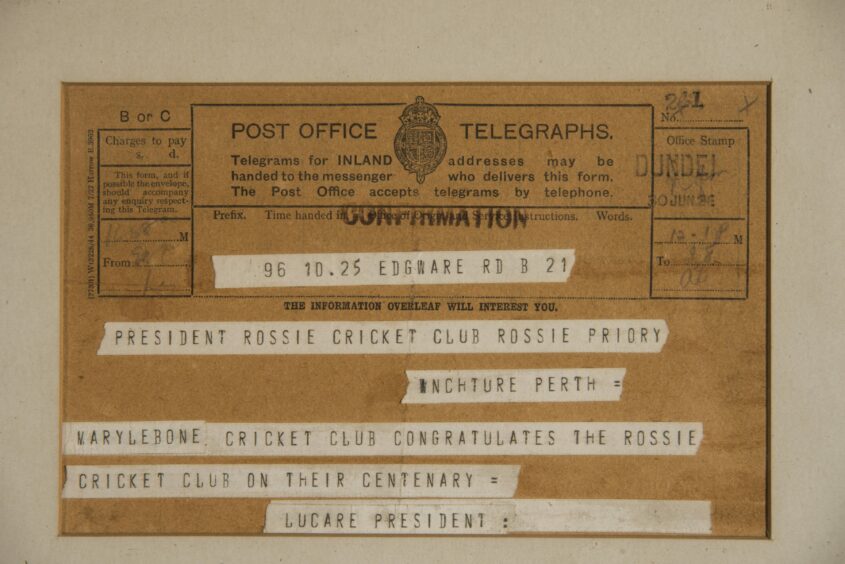 B or C
Charges to pay
s. d.
This form, and if
possible the envelope,
should accompany
any enquiry respect-
ing this Telegram.
M
From
POST OFFICE TELEGRAPHS.
Telegrams for INLAND addresses may be
handed to the messenger who delivers this form.
The Post Office accepts telegrams by telephone.
Prefix. Time handed in. Office of Origin and Service Instructions. Words.
CONFIRMATION
No.
Office Stamp
DUNDEE
30 JUN
M
To
96 10.25 EDGWARE RD B 21
THE INFORMATION OVERLEAF WILL INTEREST YOU.
PRESIDENT ROSSIE CRICKET CLUB ROSSIE PRIORY
INCHTURE PERTH =
MARYLEBONE CRICKET CLUB CONGRATULATES THE ROSSIE
CRICKET CLUB ON THEIR CENTENARY =
LUCARE PRESIDENT :